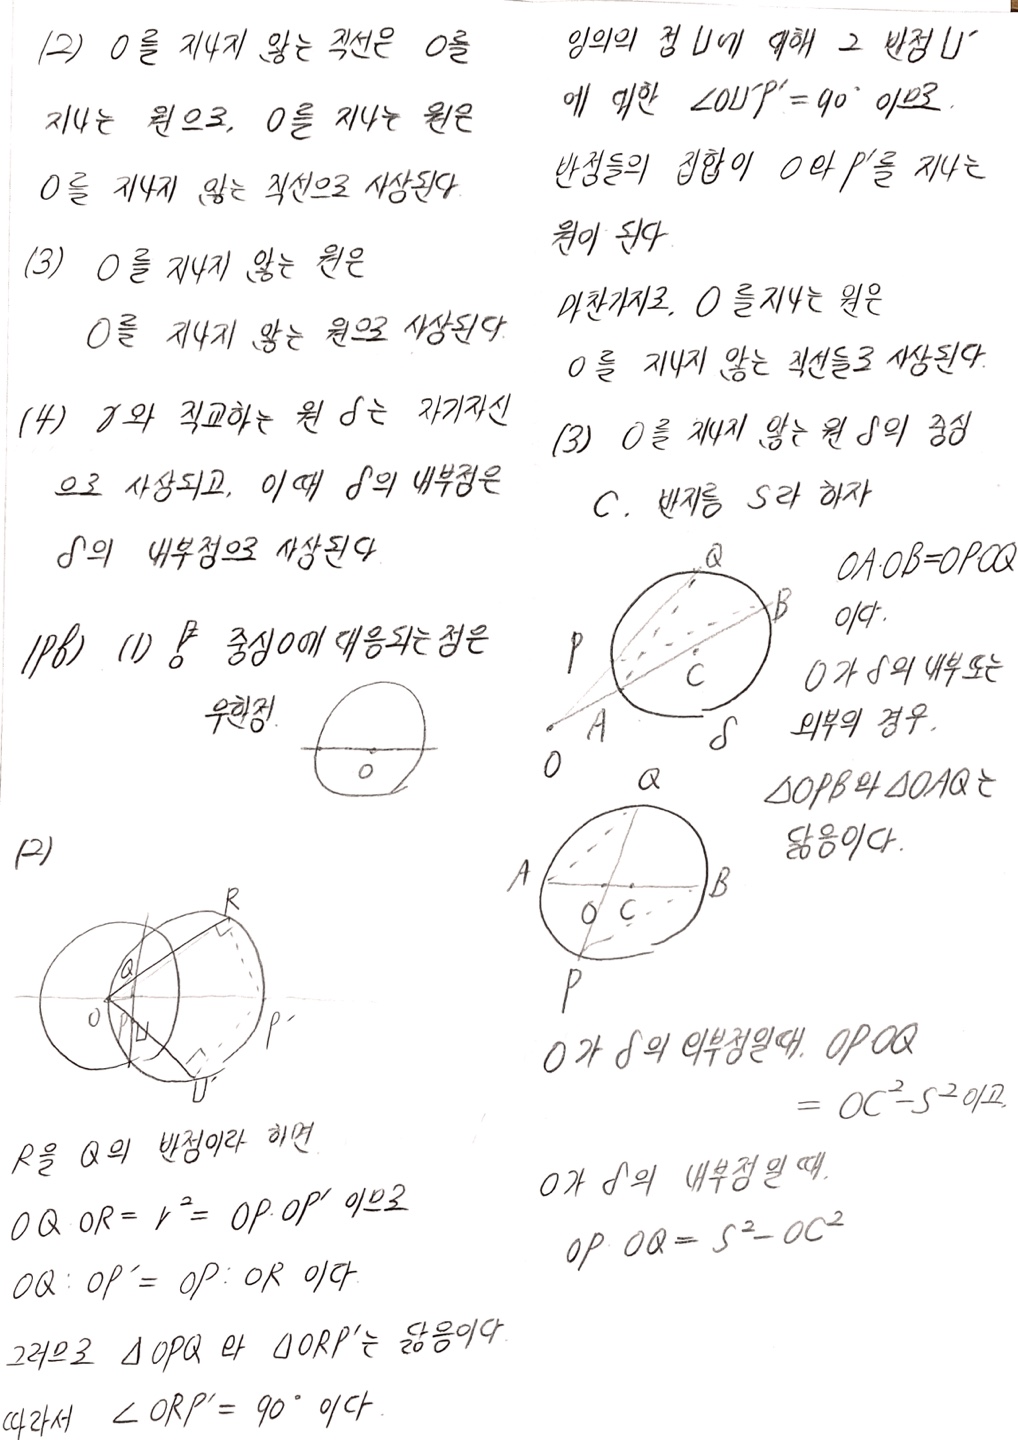 (2) O를 지나지 않는 직선은 O를
지나는 원으로, O를 지나는 원은
O를 지나지 않는 직선으로 사상된다.
(3) O를 지나지 않는 원은
O를 지나지 않는 원으로 사상된다.
(4) γ와 직교하는 원 δ는 자기자신
으로 사상되고, 이때 δ의 내부점은
δ의 내부점으로 사상된다
|pf) (1) 중심O에 대응되는 점은
무한점.
O
(2)
R
Q
O
P
U
P′
U′
R을 Q의 반점이라 하면
OQ·OR = r² = OP·OP′ 이므로
OQ : OP′ = OP : OR 이다
그러므로 △OPQ 와 △ORP′는 닮음이다.
따라서 ∠ORP′ = 90° 이다.
임의의 점 U에 대해 그 반점 U′
에 대한 ∠OU′P′ = 90° 이므로.
반점들의 집합이 O와 P′를 지나는
원이 된다.
마찬가지로, O를 지나는 원은
O를 지나지 않는 직선들로 사상된다.
(3) O를 지나지 않는 원 δ의 중심
C. 반지름 S라 하자
Q
B
P
C
A
δ
O
OA·OB=OP·OQ
이다.
O가 δ의 내부 또는
외부의 경우.
△OPB와 △OAQ는
닮음이다.
Q
A
B
O C
P
O가 δ의 외부점일때. OP·OQ
= OC²-S² 이고.
O가 δ의 내부점일 때.
OP·OQ = S² - OC²